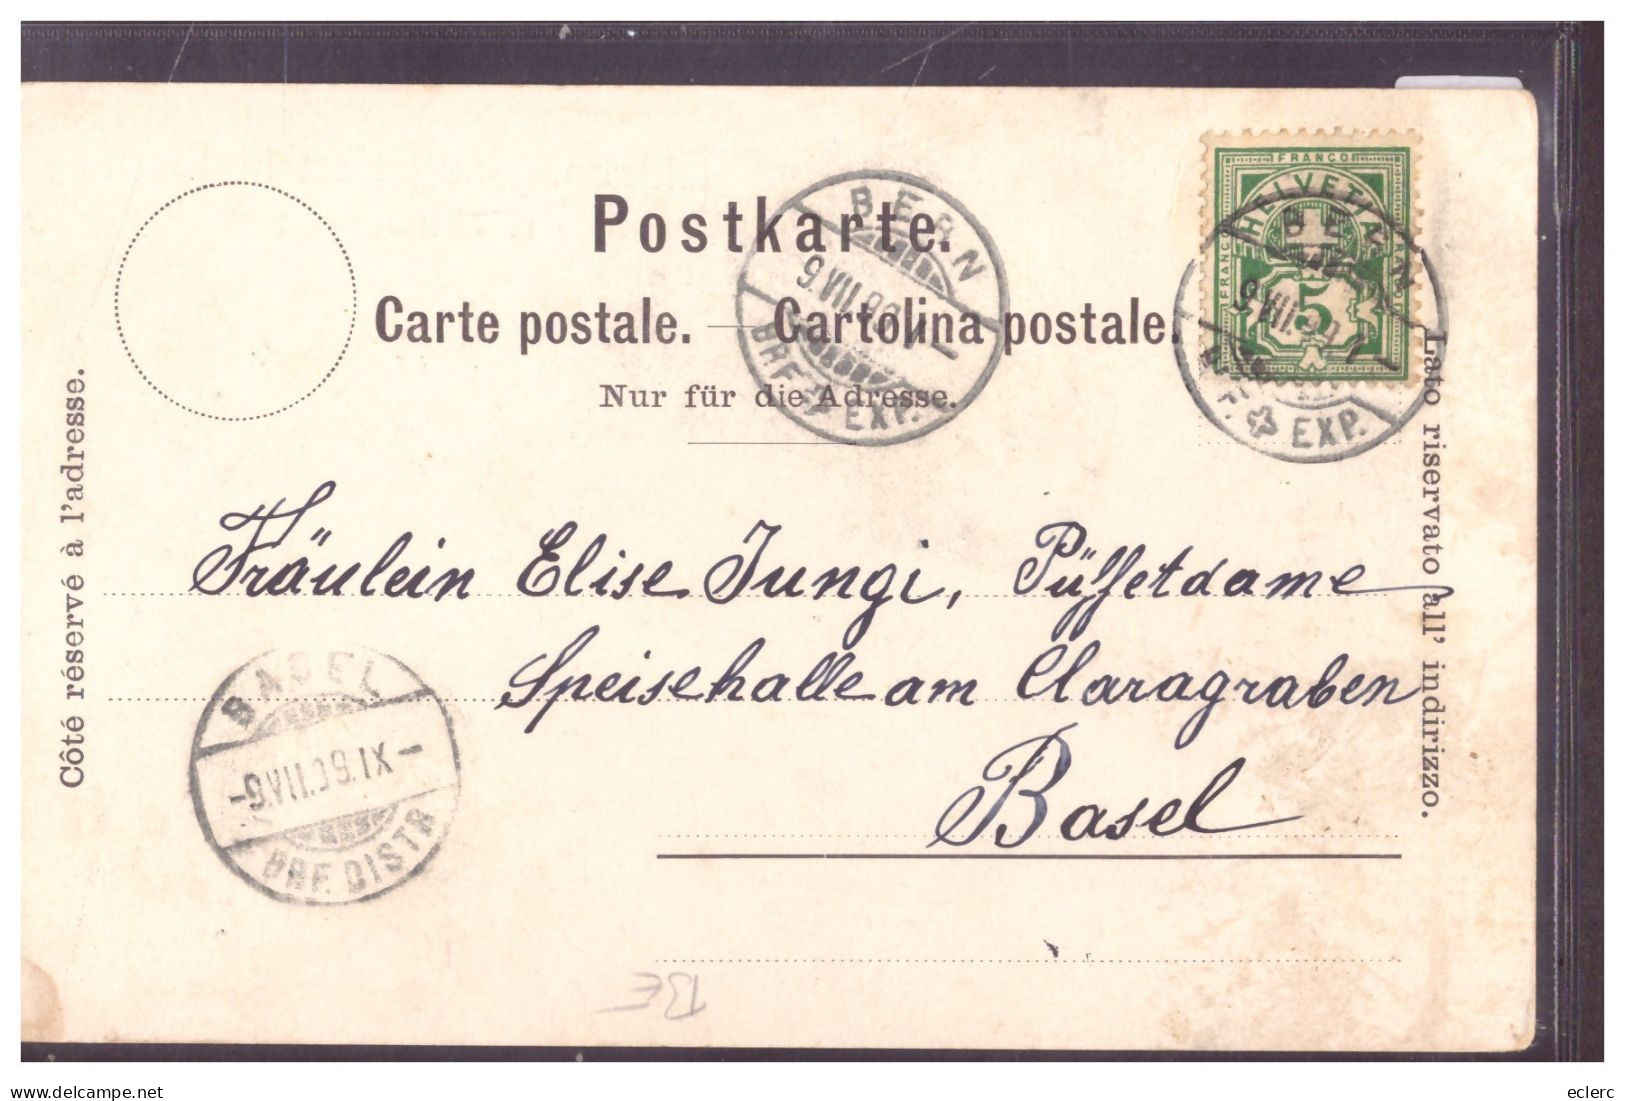 Postkarte.
Carte postale. — Cartolina postale.
Nur für die Adresse.
Côté réservé à l'adresse.
Lato riservato all' indirizzo.
FRANCO
HELVETIA
FRANCO
5
BERN
9.VII.99
BRF. EXP.
BERN
9.VII.
EXP.
Fräulein Elise Jungi, Püffetdame
Speisehalle am Claragraben
Basel
BASEL
BRF. DISTR
BE
delcampe.net
eclerc